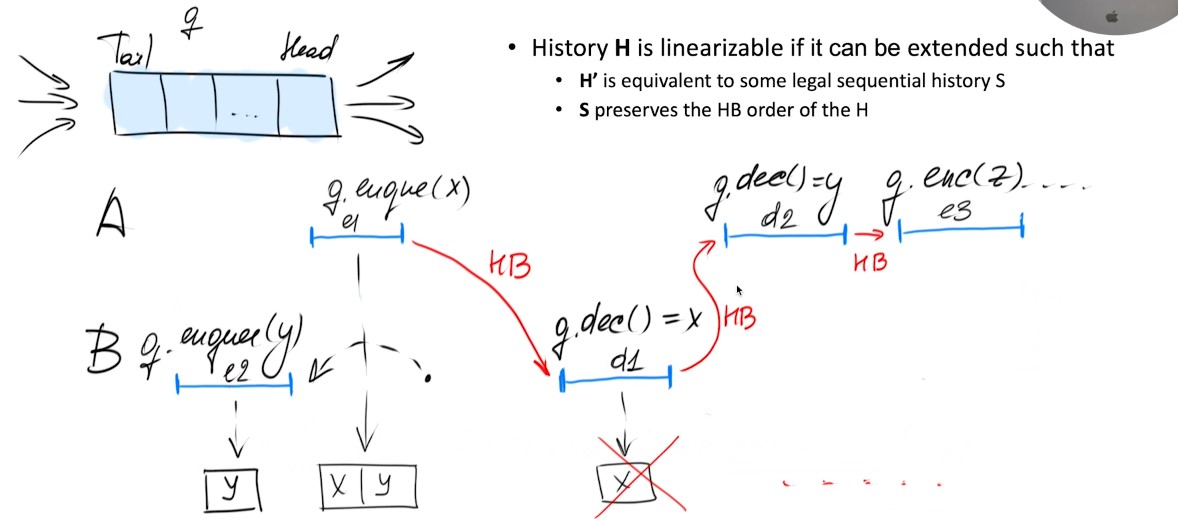 q
Tail
Head
...
• History H is linearizable if it can be extended such that
• H' is equivalent to some legal sequential history S
• S preserves the HB order of the H
A
q.enque(x)
e1
q.dec()=y
d2
q.enc(z)....
e3
HB
HB
B
q.enque(y)
e2
q.dec()=x
d1
HB
y
x|y
x